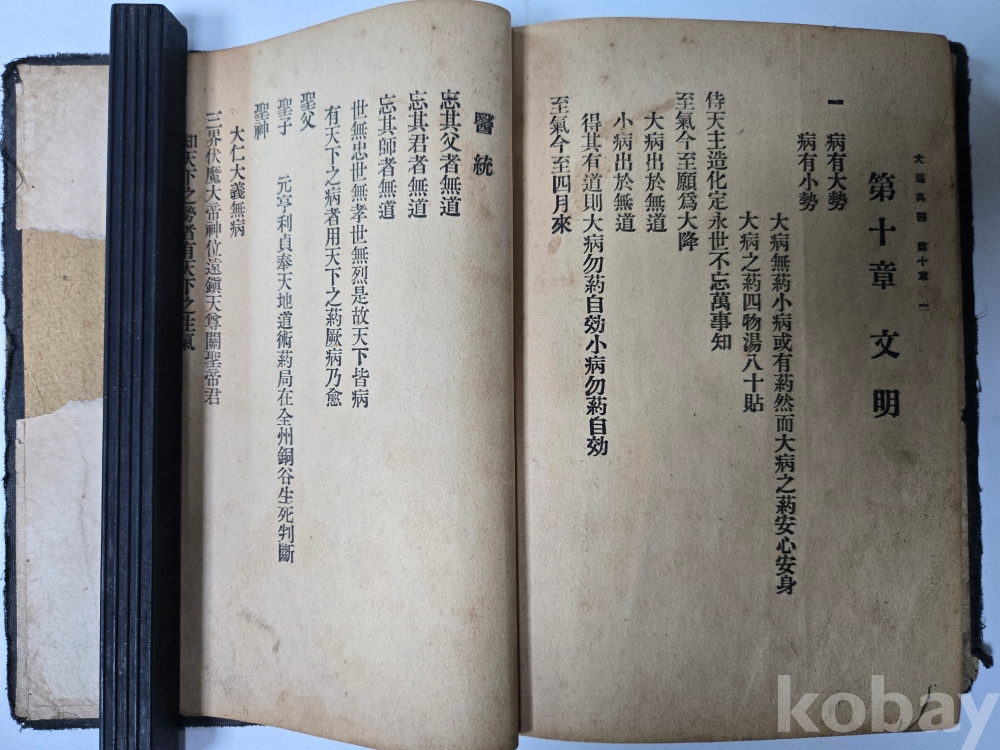 第十章 文明
一 病有大勢
病有小勢
大病無葯小病或有葯然而大病之葯安心安身
大病之葯四物湯八十貼
侍天主造化定永世不忘萬事知
至氣今至願爲大降
大病出於無道
小病出於無道
得其有道則大病勿葯自効小病勿葯自効
至氣今至四月來
醫統
忘其父者無道
忘其君者無道
忘其師者無道
世無忠世無孝世無烈是故天下皆病
有天下之病者用天下之葯厥病乃愈
聖父
聖子 元亨利貞奉天地道術葯局在全州銅谷生死判斷
聖神
大仁大義無病
三界伏魔大帝神位遠鎭天尊關聖帝君
知天下之勢者有天下之生氣
kobay